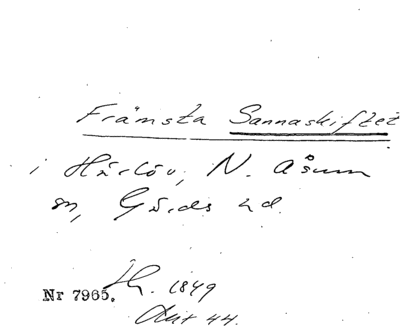 Främsta Sannaskiftet
i Härlöv, N. Åsum
sn, Gärds hd.
Nr 7965. 1849
Akt 44.